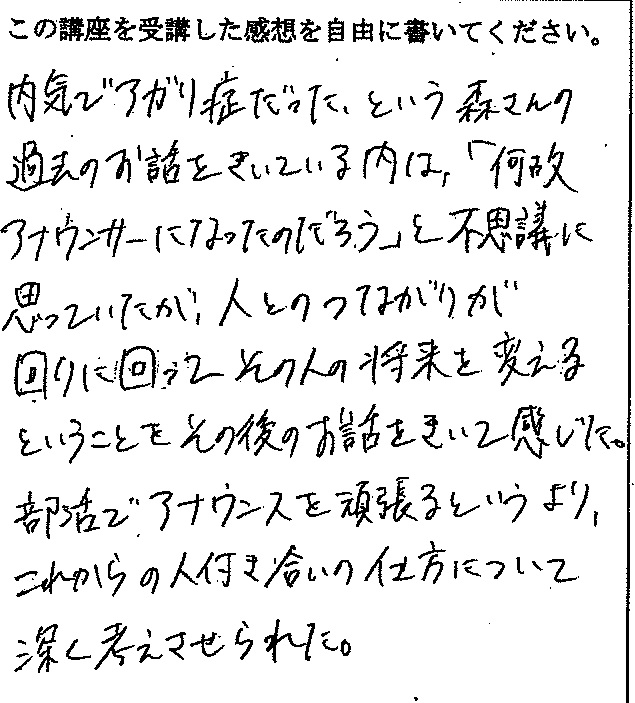 この講座を受講した感想を自由に書いてください。
内気でアガリ症だった、という森さんの
過去のお話をきいている内は、「何故
アナウンサーになったのだろう」と不思議に
思っていたが、人とのつながりが
回りに回って その人の将来を変える
ということを その後のお話をきいて感じた。
部活でアナウンスを頑張るというより、
これからの人付き合いの仕方について
深く考えさせられた。